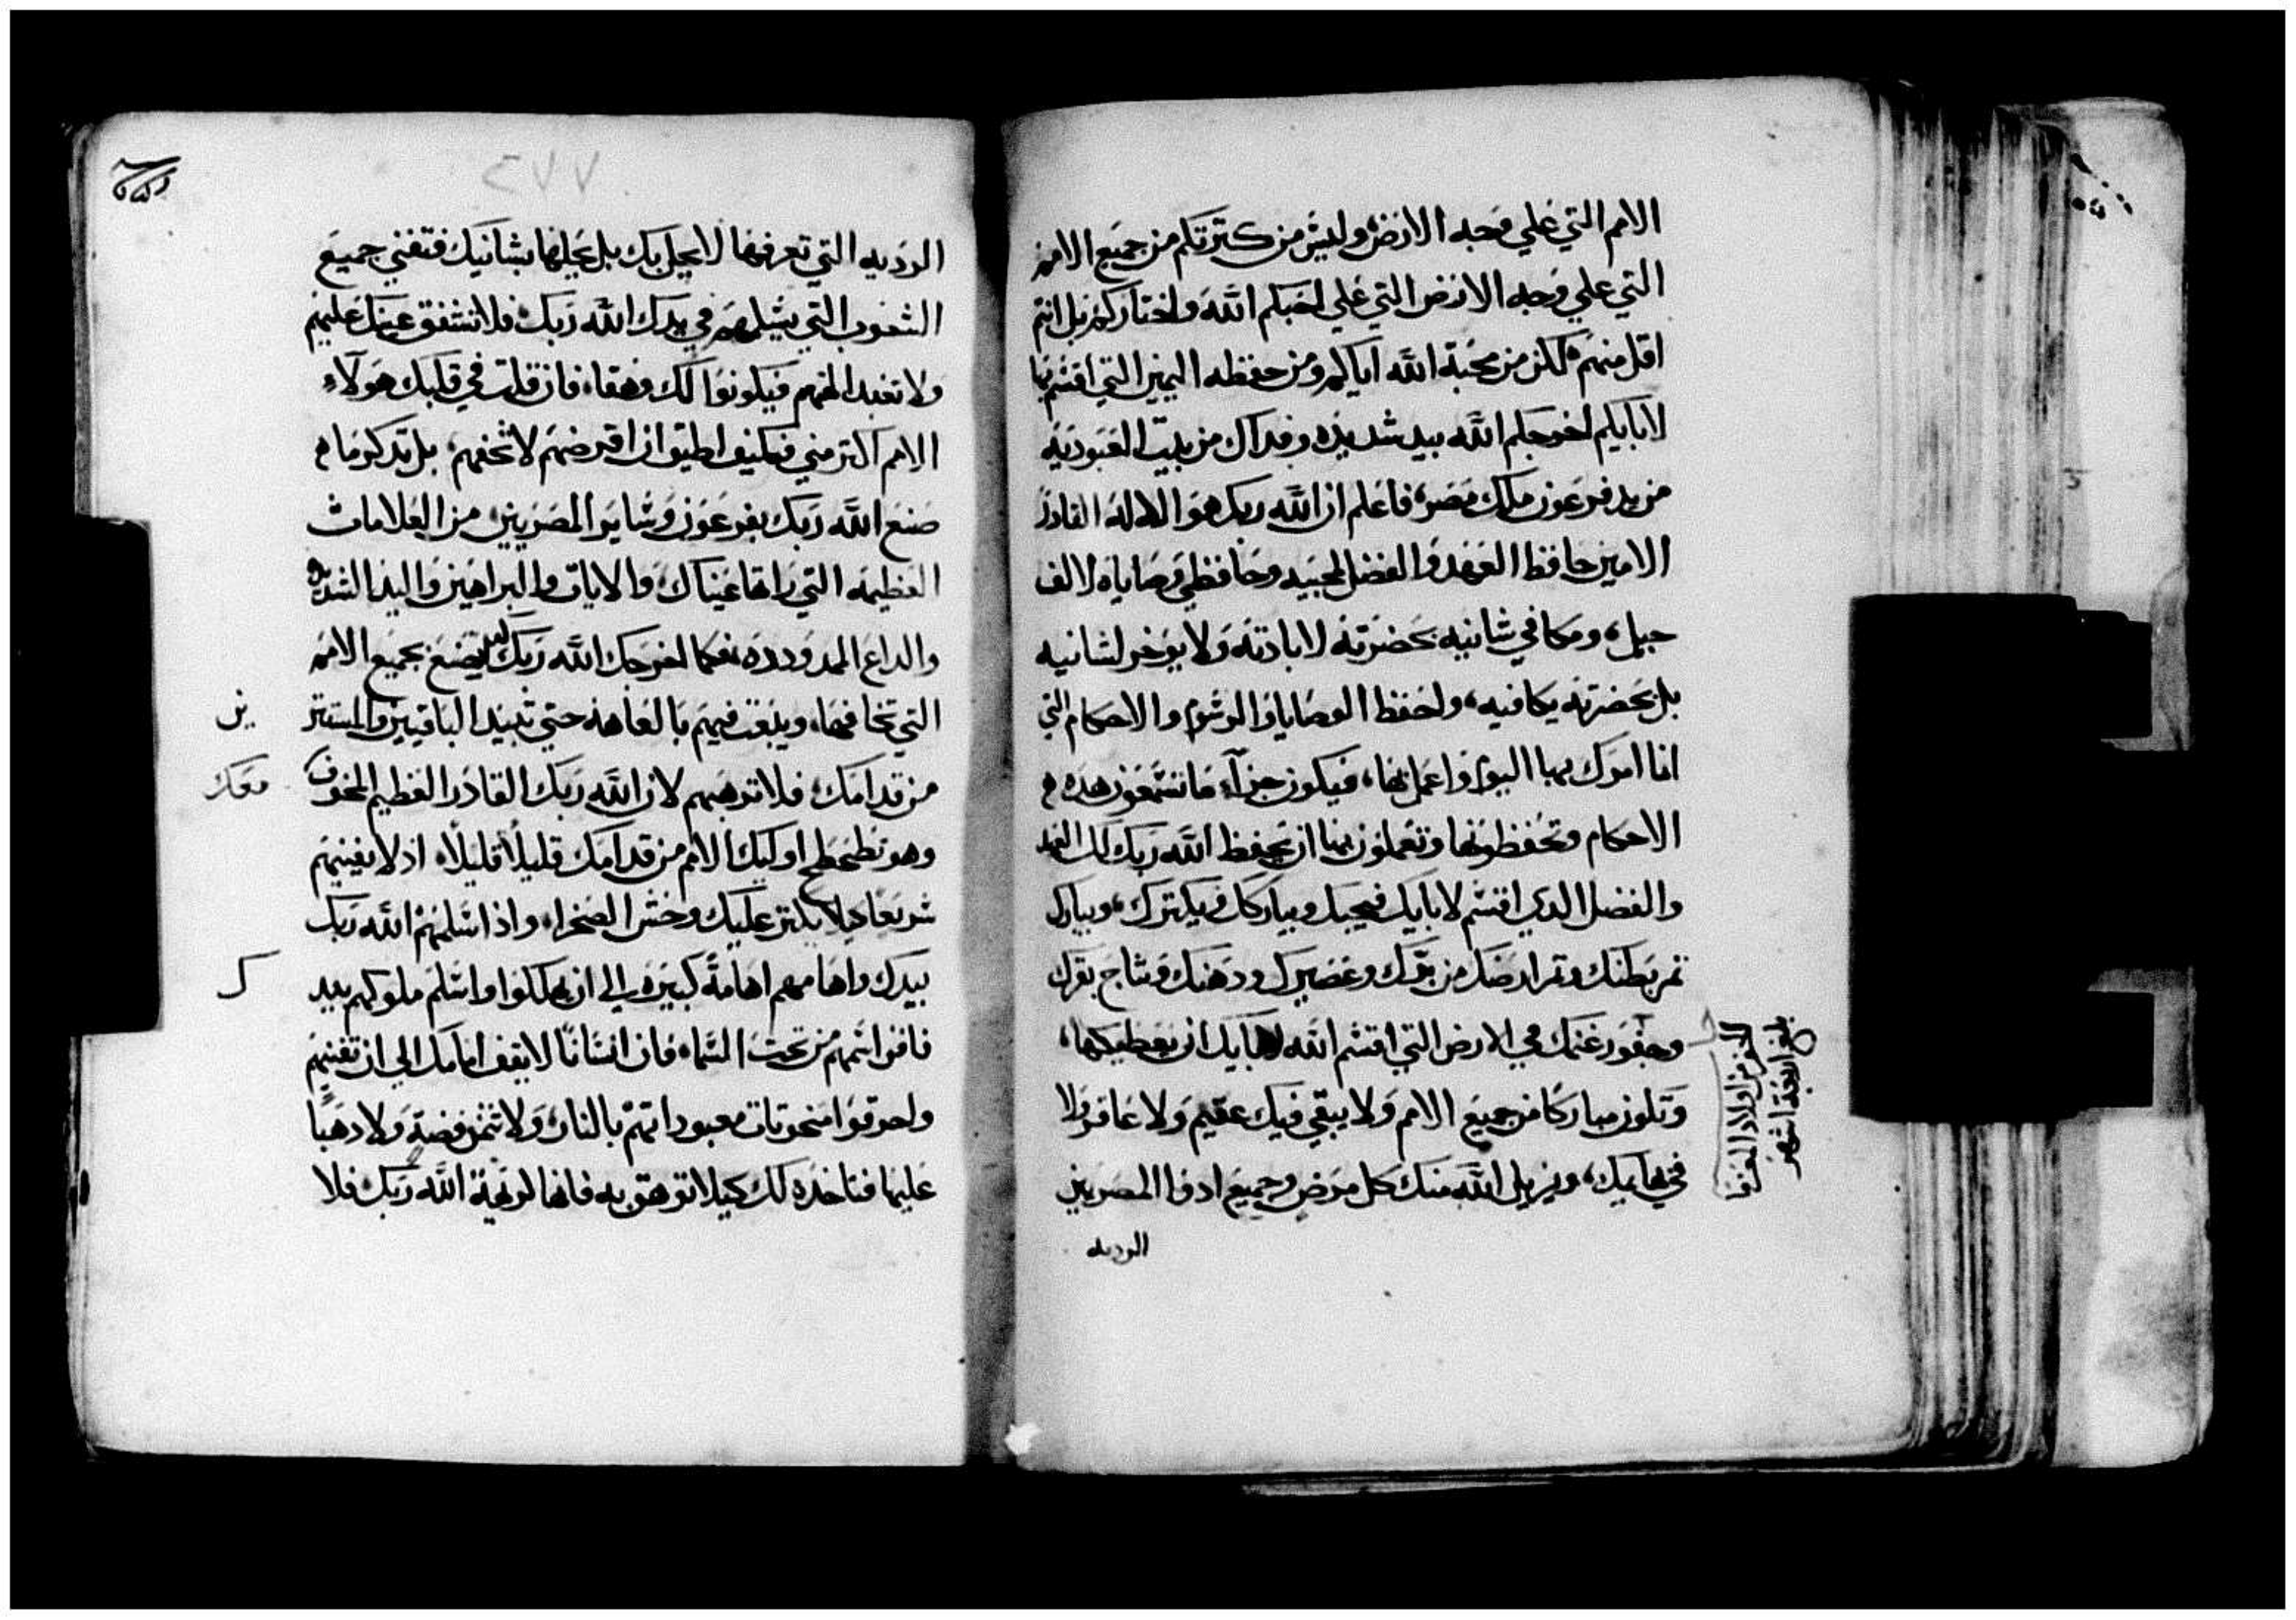 الامم التي علي وجه الارض وليس من كترتكم من جميع الامم
التي علي وجه الارض التي علي احبكم الله واختاركم بل انتم
اقل منهم لكن من محبة الله اياكم ومن حفظه اليمين التي اقسم بها
لابايكم اخرجكم الله بيد شديده وفداك من بيت العبوديه
من يد فرعون ملك مصر، فاعلم ان الله ربك هو الاله القادر
الامين حافظ العهد والفضل لمحبيه وحافظي وصاياه لالف
جيل، ومكافي شانيه بحضرته لابادته ولا يوخر لشانيه
بل بحضرته يكافيه، واحفظ الوصايا والرسوم والاحكام التي
انا امرك بها اليوم واعمل بها، فيكون جزآء ما تسمعون هده
الاحكام وتحفظونها وتعملون بها ان يحفظ الله ربك لك العهد
والفضل الدي اقسم لابايك فيحبك ويباركك ويكترك، ويبارك
تمر بطنك وتمر ارضك من برك وعصيرك ودهنك ونتاج بقرك
وجفور غنمك في الارض التي اقسم الله لابايك ان يعطيكها،
وتكون مباركا من جميع الامم ولا يبقي فيك عقيم ولا عاقر ولا
في بهايمك، ويزيل الله منك كل مرض وجميع ادوا المصريين
الرديه
الجفر من اولاد المعز
اربعة اشهر
٢٧٧
الرديه التي تعرفها لا يحل بك بل يحلها بشانيك فتفني جميع
الشعوب التي يسلمهم في يدك الله ربك فلا تشفق عينك عليهم
ولا تعبد الهتهم فيكونوا لك وهقا، فان قلت في قلبك هولآء
الامم اكتر مني فكيف اطيق ان اقرضهم لا تخفهم، بل تدكر ما
صنع الله ربك بفرعون وساير المصريين، من العلامات
العظيمه التي راتها عيناك والايات والبراهين واليد الشديده
والداع الممدوده كما اخرجك الله ربك كدلك يصنع بجميع الامم
التي تخافها، ويبعت فيهم بالعاهة حتي تبيد الباقيين والمستتر
ين
من قدامك، فلا ترهبهم لان الله ربك القادر العظيم المخوف
معك
وهو يطحطح اوليك الامم من قدامك قليلًا قليلًا، اد لا يفنيهم
سريعًا ليلا يكتر عليك وحش الصحرا، وادا اسلمهم الله ربك
بيدك واهامهم اهامةً كبيره الي ان يهلكوا واسلم ملوكهم بيد
ك
فافن اسمهم من تحت السماء فان انسانًا لا يقف امامك الي ان تفنيهم
واحرقوا منحوتات معبوداتهم بالنار، ولا تتمن فضة ولا دهبًا
عليها فتاخده لك كيلا توهق به فانها لوهية الله ربك فلا